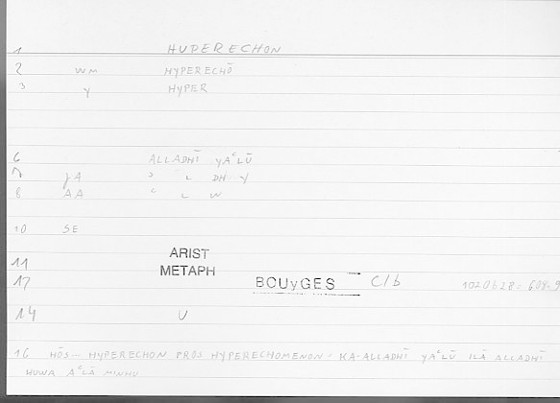 1 HUPERECHON
2 WM HYPERECHŌ
3 Y HYPER
6 ALLADHĪ YAʿLŪ
7 JA ʾ L DH Y
8 AA ʿ L W
10 SE
11 ARIST
METAPH
12 BOUyGES C/b 1020b28: 608.9
14 U
16 HŌS — HYPERECHON PROS HYPERECHOMENON · KA-ALLADHĪ YAʿLŪ ILĀ ALLADHĪ
HUWA AʿLĀ MINHU